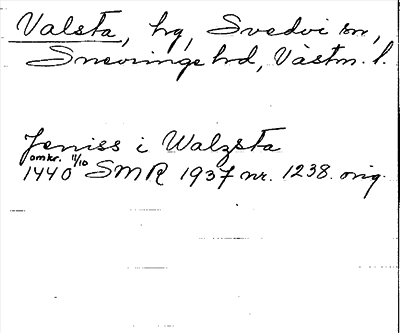 Valsta, hg, Svedvi sn,
Snevringe hd, Västm. l.
Jeniss i Walzsta
omkr. 11/10
1440 SMR 1937 nr. 1238. orig.